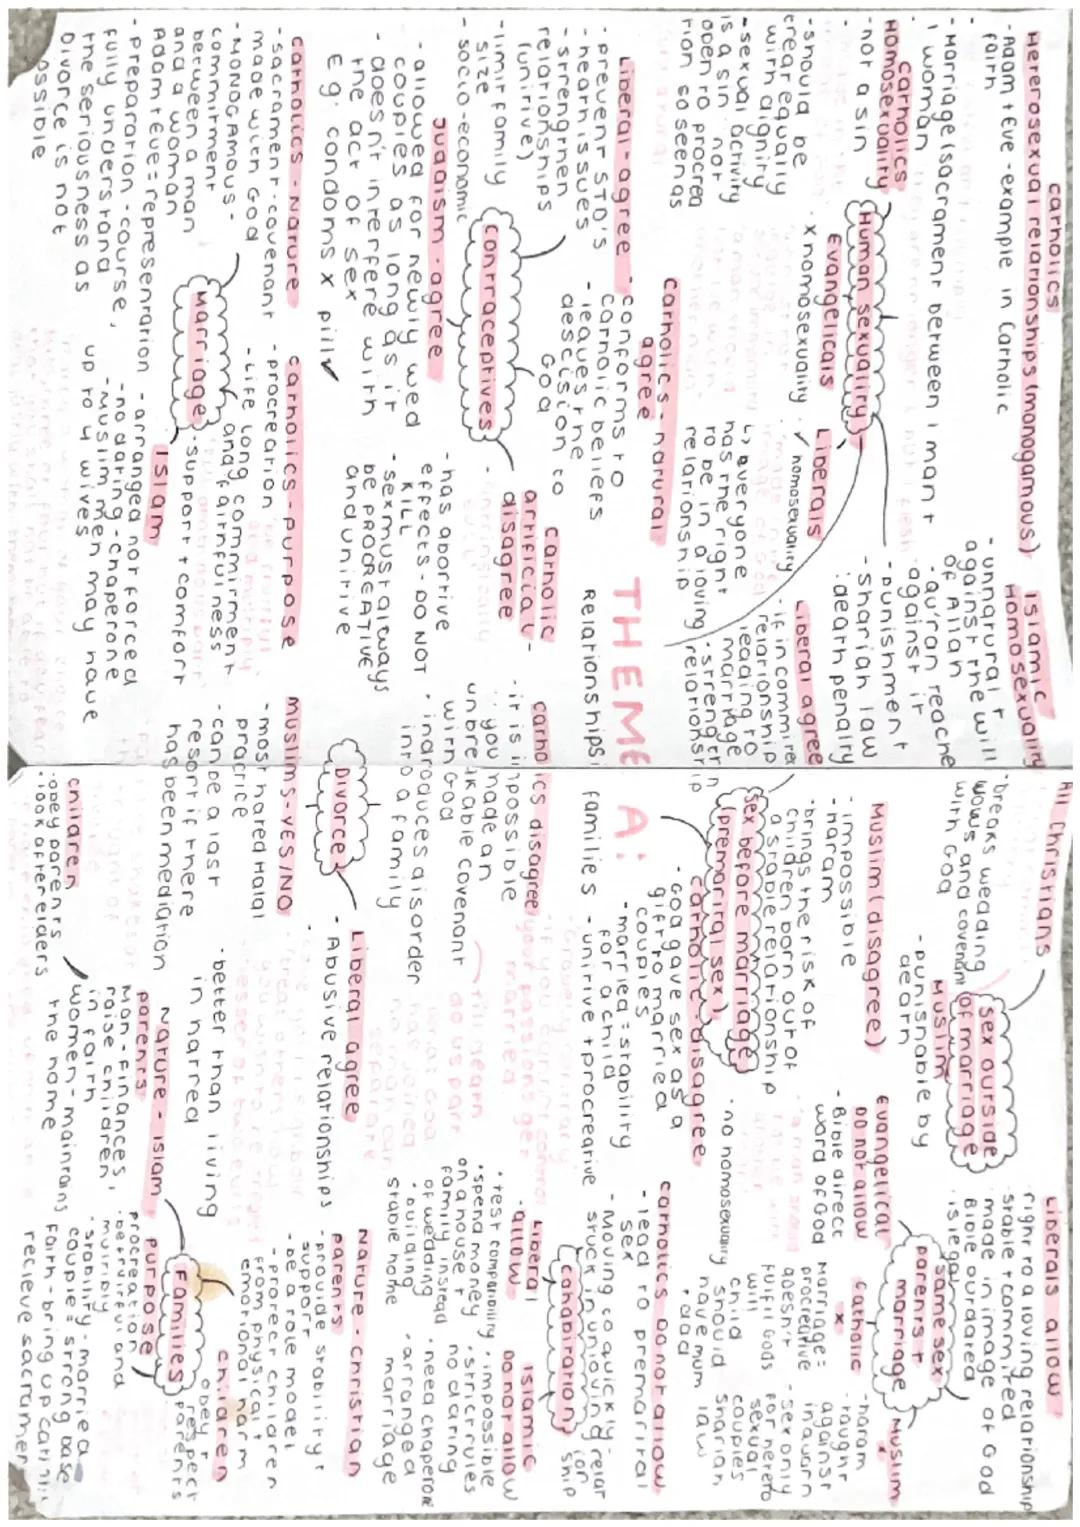 THEME A:
Relationships + families
Human sexuality
Catholics
Heterosexual relationships (monogamous)
- Adam + Eve - example in Catholic
faith
- Marriage (sacrament between 1 man +
1 woman
Catholics
Homosexuality
- not a sin
- should be
treat equally
with dignity
- sexual activity
is a sin - not
open to procrea
tion so seen as
Evangelicals
x homosexuality
Liberals
✓ homosexuality
↳ everyone
has the right
to be in a loving
relationship
Islamic
Homosexuality
- unnatural +
against the will
of Allah
- Qur'an teache
against it
- punishment
- Shariah law
: death penalty
Liberal agree
- if in commited
relationship
leading to
marriage
- strength in
relationship
Contraceptives
Liberal - agree
- prevent STD's
- health issues
- strengthen
relationships
(unitive)
- limit family
size
- socio-economic
Catholics - natural
agree
- conforms to
Catholic beliefs
- leaves the
descision to
God
Judaism - agree
- allowed for newly wed
couples as long as it
doesn't interfere with
the act of sex
E.g. condoms x pill ✓
Catholic
artificial -
disagree
- has abortive
effects - DO NOT
KILL
- sex must always
be PROCREATIVE
and unitive
Marriage
Catholics - Nature
- sacrament - covenant
made with God
- MONOGAMOUS -
commitment
between a man
and a woman
Adam + Eve = representation
- preparation - course,
fully understand
the seriousness as
Divorce is not
possible
Catholics - purpose
- procreation
- Life long commitment
and faithfulness
- support + comfort
Islam
- arranged not forced
- no dating - chaperone
- Muslim men may have
up to 4 wives
Sex outside
of marriage
All Christians
- breaks wedding
vows and covenant
with God
Muslim
- punishable by
death
Liberals allow
- right to a loving relationship
- stable + commited
- made in image of God
- Bible outdated
- is legal
Same sex
parents +
marriage
Evangelical
Do not allow
- Bible direct
word of God
- no homosexuality
Catholic
x
Marriage =
procreative
doesn't
fulfil Gods
will
child
should
have mum
+ dad
Muslim
x
- haram
- taught
against
in Quran
- sex only
for hetero
sexual
couples
Shariah
law
Sex before marriage
(premarital sex)
Muslim (disagree)
- impossible
- haram
- brings the risk of
children born out of
a stable relationship
Catholic - disagree
- God gave sex as a
gift to married
couples
- married = stability
for a child
- unitive + procreative
Cohabitation
Catholics Do not allow
- lead to premarital
sex
- Moving too quickly -
stuck in unloving relat
ion
ship
Liberal
- allow
- test compatibility
- spend money
on a house +
family instead
of wedding
- building
stable home
Islamic
Do not allow
- impossible
- strict rules
no dating
- need chaperone
- arranged
marriage
Divorce
Catholics disagree
- it is impossible
: you made an
unbreakable covenant
with God
- introduces disorder
into a family
Muslims - YES/NO
- most hated Halal
practice
- can be a last
resort if there
has been mediation
Liberal agree
- Abusive relationships
- better than living
in hatred
Families
Nature - Christian
parents
- provide stability +
support
- be a role model
- protect children
from physical +
emotional harm
Children
obey +
respect
parents
Nature - Islam
parents
Man - finances,
raise children
in faith
Women - maintains
the home
Children
- obey parents
- look after elders
purpose
procreation
- be fruitful and
multiply
- stability - married
couple = strong base
faith - bring up Catholic
recieve sacramen